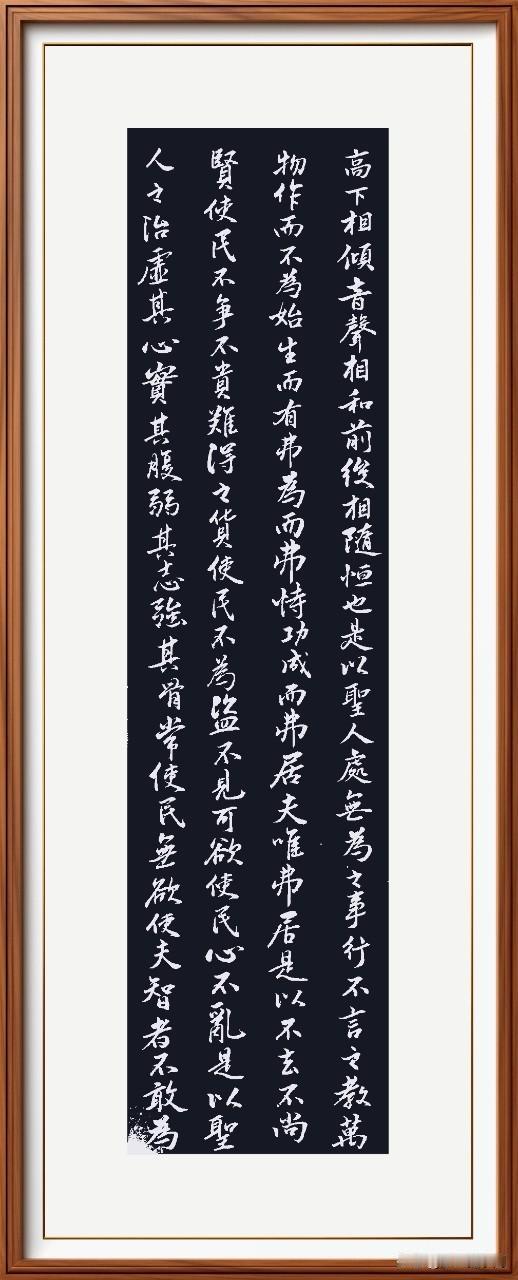 高下相傾音聲相和前後相隨恒也是以聖人處無為之事行不言之教萬
物作而不為始生而有弗為而弗恃功成而弗居夫唯弗居是以不去不尚
賢使民不爭不貴難得之貨使民不為盜不見可欲使民心不亂是以聖
人之治虛其心實其腹弱其志強其骨常使民無欲使夫智者不敢為